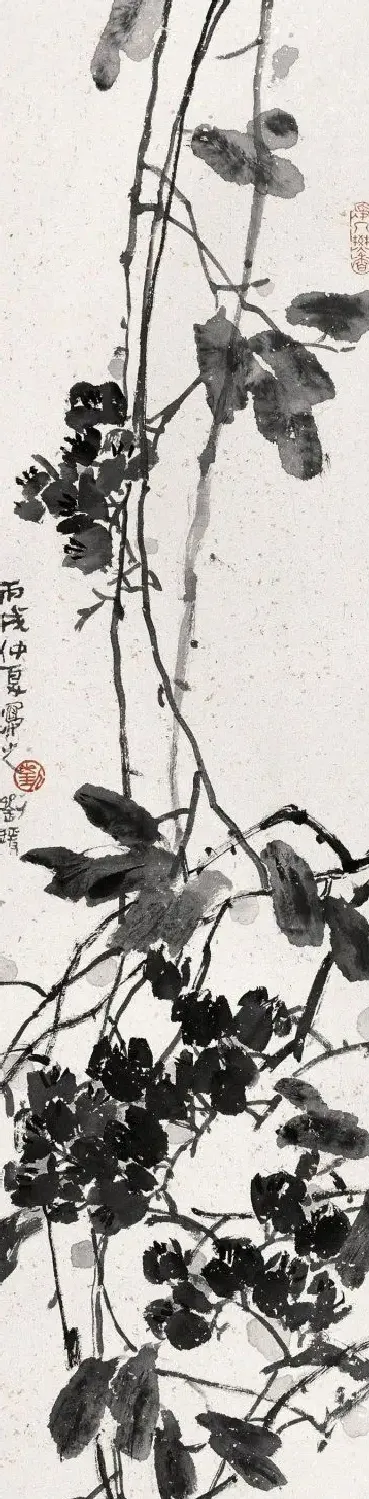 丙戌仲夏寫之 劉
劉